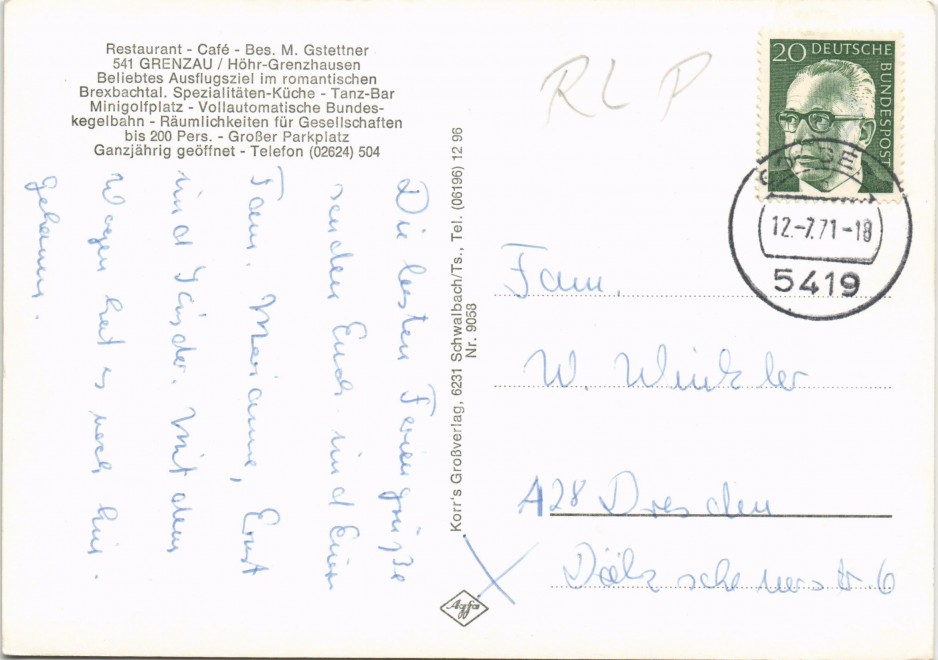 Restaurant - Café - Bes. M. Gstettner
541 GRENZAU / Höhr-Grenzhausen
Beliebtes Ausflugsziel im romantischen
Brexbachtal. Spezialitäten-Küche - Tanz-Bar
Minigolfplatz - Vollautomatische Bundes-
kegelbahn - Räumlichkeiten für Gesellschaften
bis 200 Pers. - Großer Parkplatz
Ganzjährig geöffnet - Telefon (02624) 504
Die besten Feriengrüße
senden Euch und Eurer
Fam. Marianne, Ernst
und Kinder. Mit dem
Wagen hat es noch hin.
gehauen.
Korr's Großverlag, 6231 Schwalbach/Ts., Tel. (06196) 12 96
Nr. 9058
Agfa
RLP
20 DEUTSCHE
BUNDESPOST
12.-7.71-18
5419
Fam.
W. Winkler
A28 Dresden
Dölzschenerstr. 6